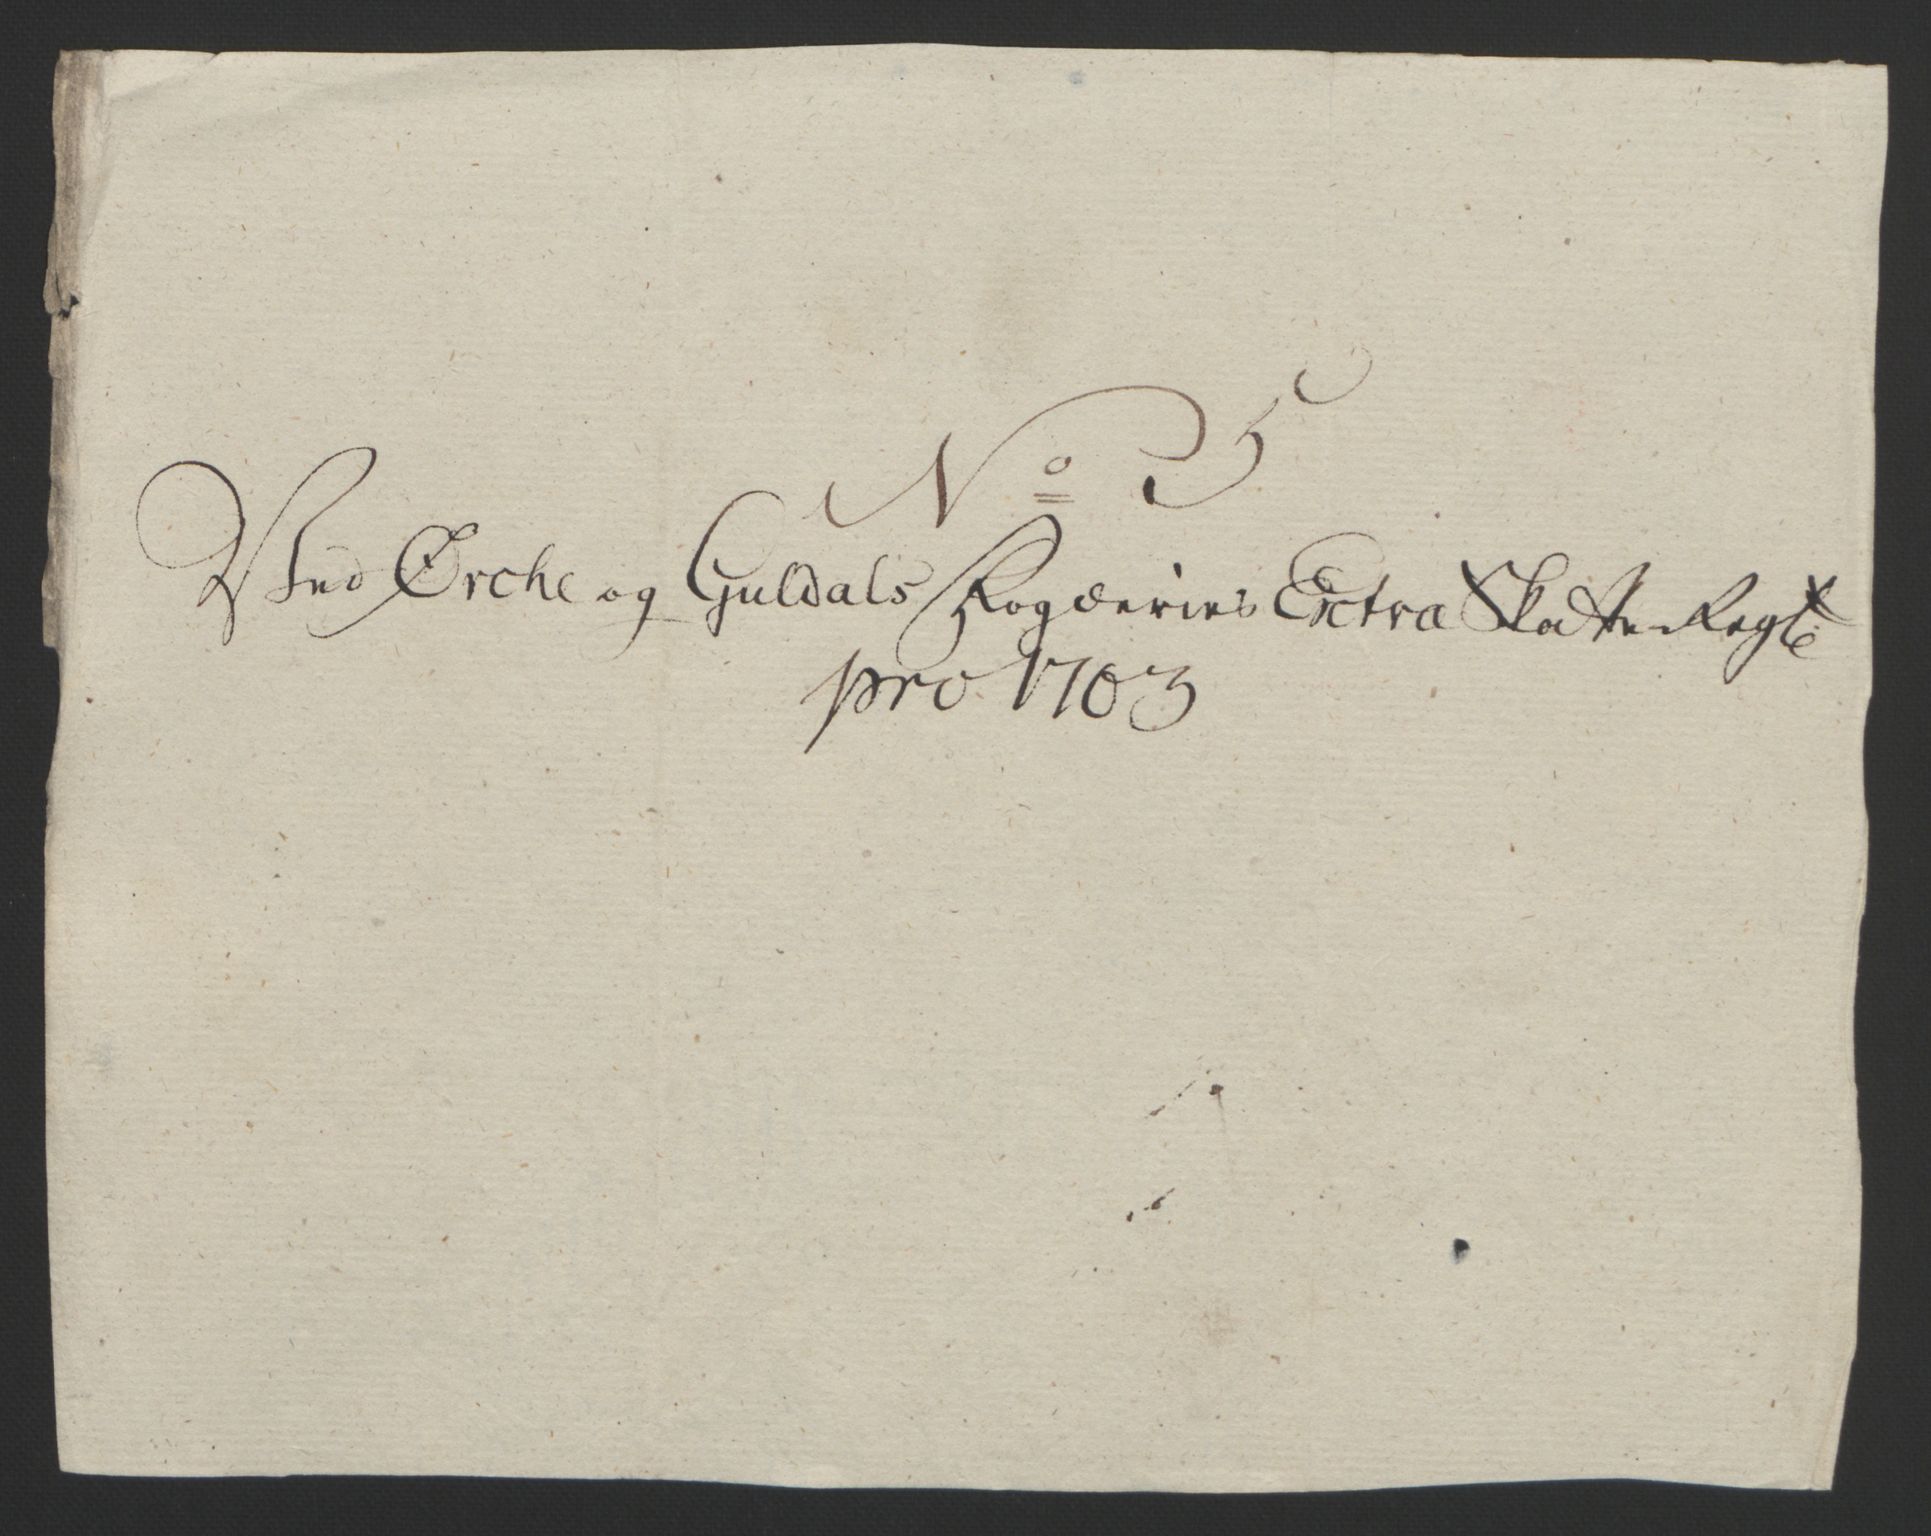 No 5
Ved Ørche og Guldals Fogderies Extra Skatte Regt:
pro 1703